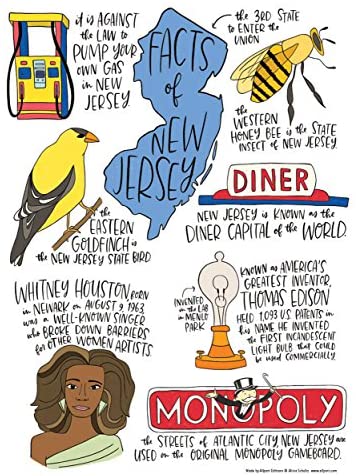 it is AGAINST
the LAW to
PUMP YOUR
OWN GAS
in NEW
JERSEY.
FACTS
of
NEW
JERSEY
the 3RD STATE
to ENTER the
UNION
the
WESTERN
HONEY BEE is the STATE
INSECT of NEW JERSEY.
the
EASTERN
GOLDFINCH is
the NEW JERSEY STATE BIRD.
DINER
NEW JERSEY is KNOWN as the
DINER CAPITAL of the WORLD.
WHITNEY HOUSTON, BORN
in NEWARK on AUGUST 9, 1963,
was a WELL-KNOWN SINGER
who BROKE DOWN BARRIERS
for OTHER WOMEN ARTISTS.
INVENTED
in the LAB
in MENLO
PARK
KNOWN as AMERICA'S
GREATEST INVENTOR,
THOMAS EDISON
HELD 1,093 U.S. PATENTS in
his NAME. HE INVENTED
the FIRST INCANDESCENT
LIGHT BULB that COULD
be USED COMMERCIALLY.
MONOPOLY
the STREETS of ATLANTIC CITY, NEW JERSEY are
USED on the ORIGINAL MONOPOLY GAMEBOARD.